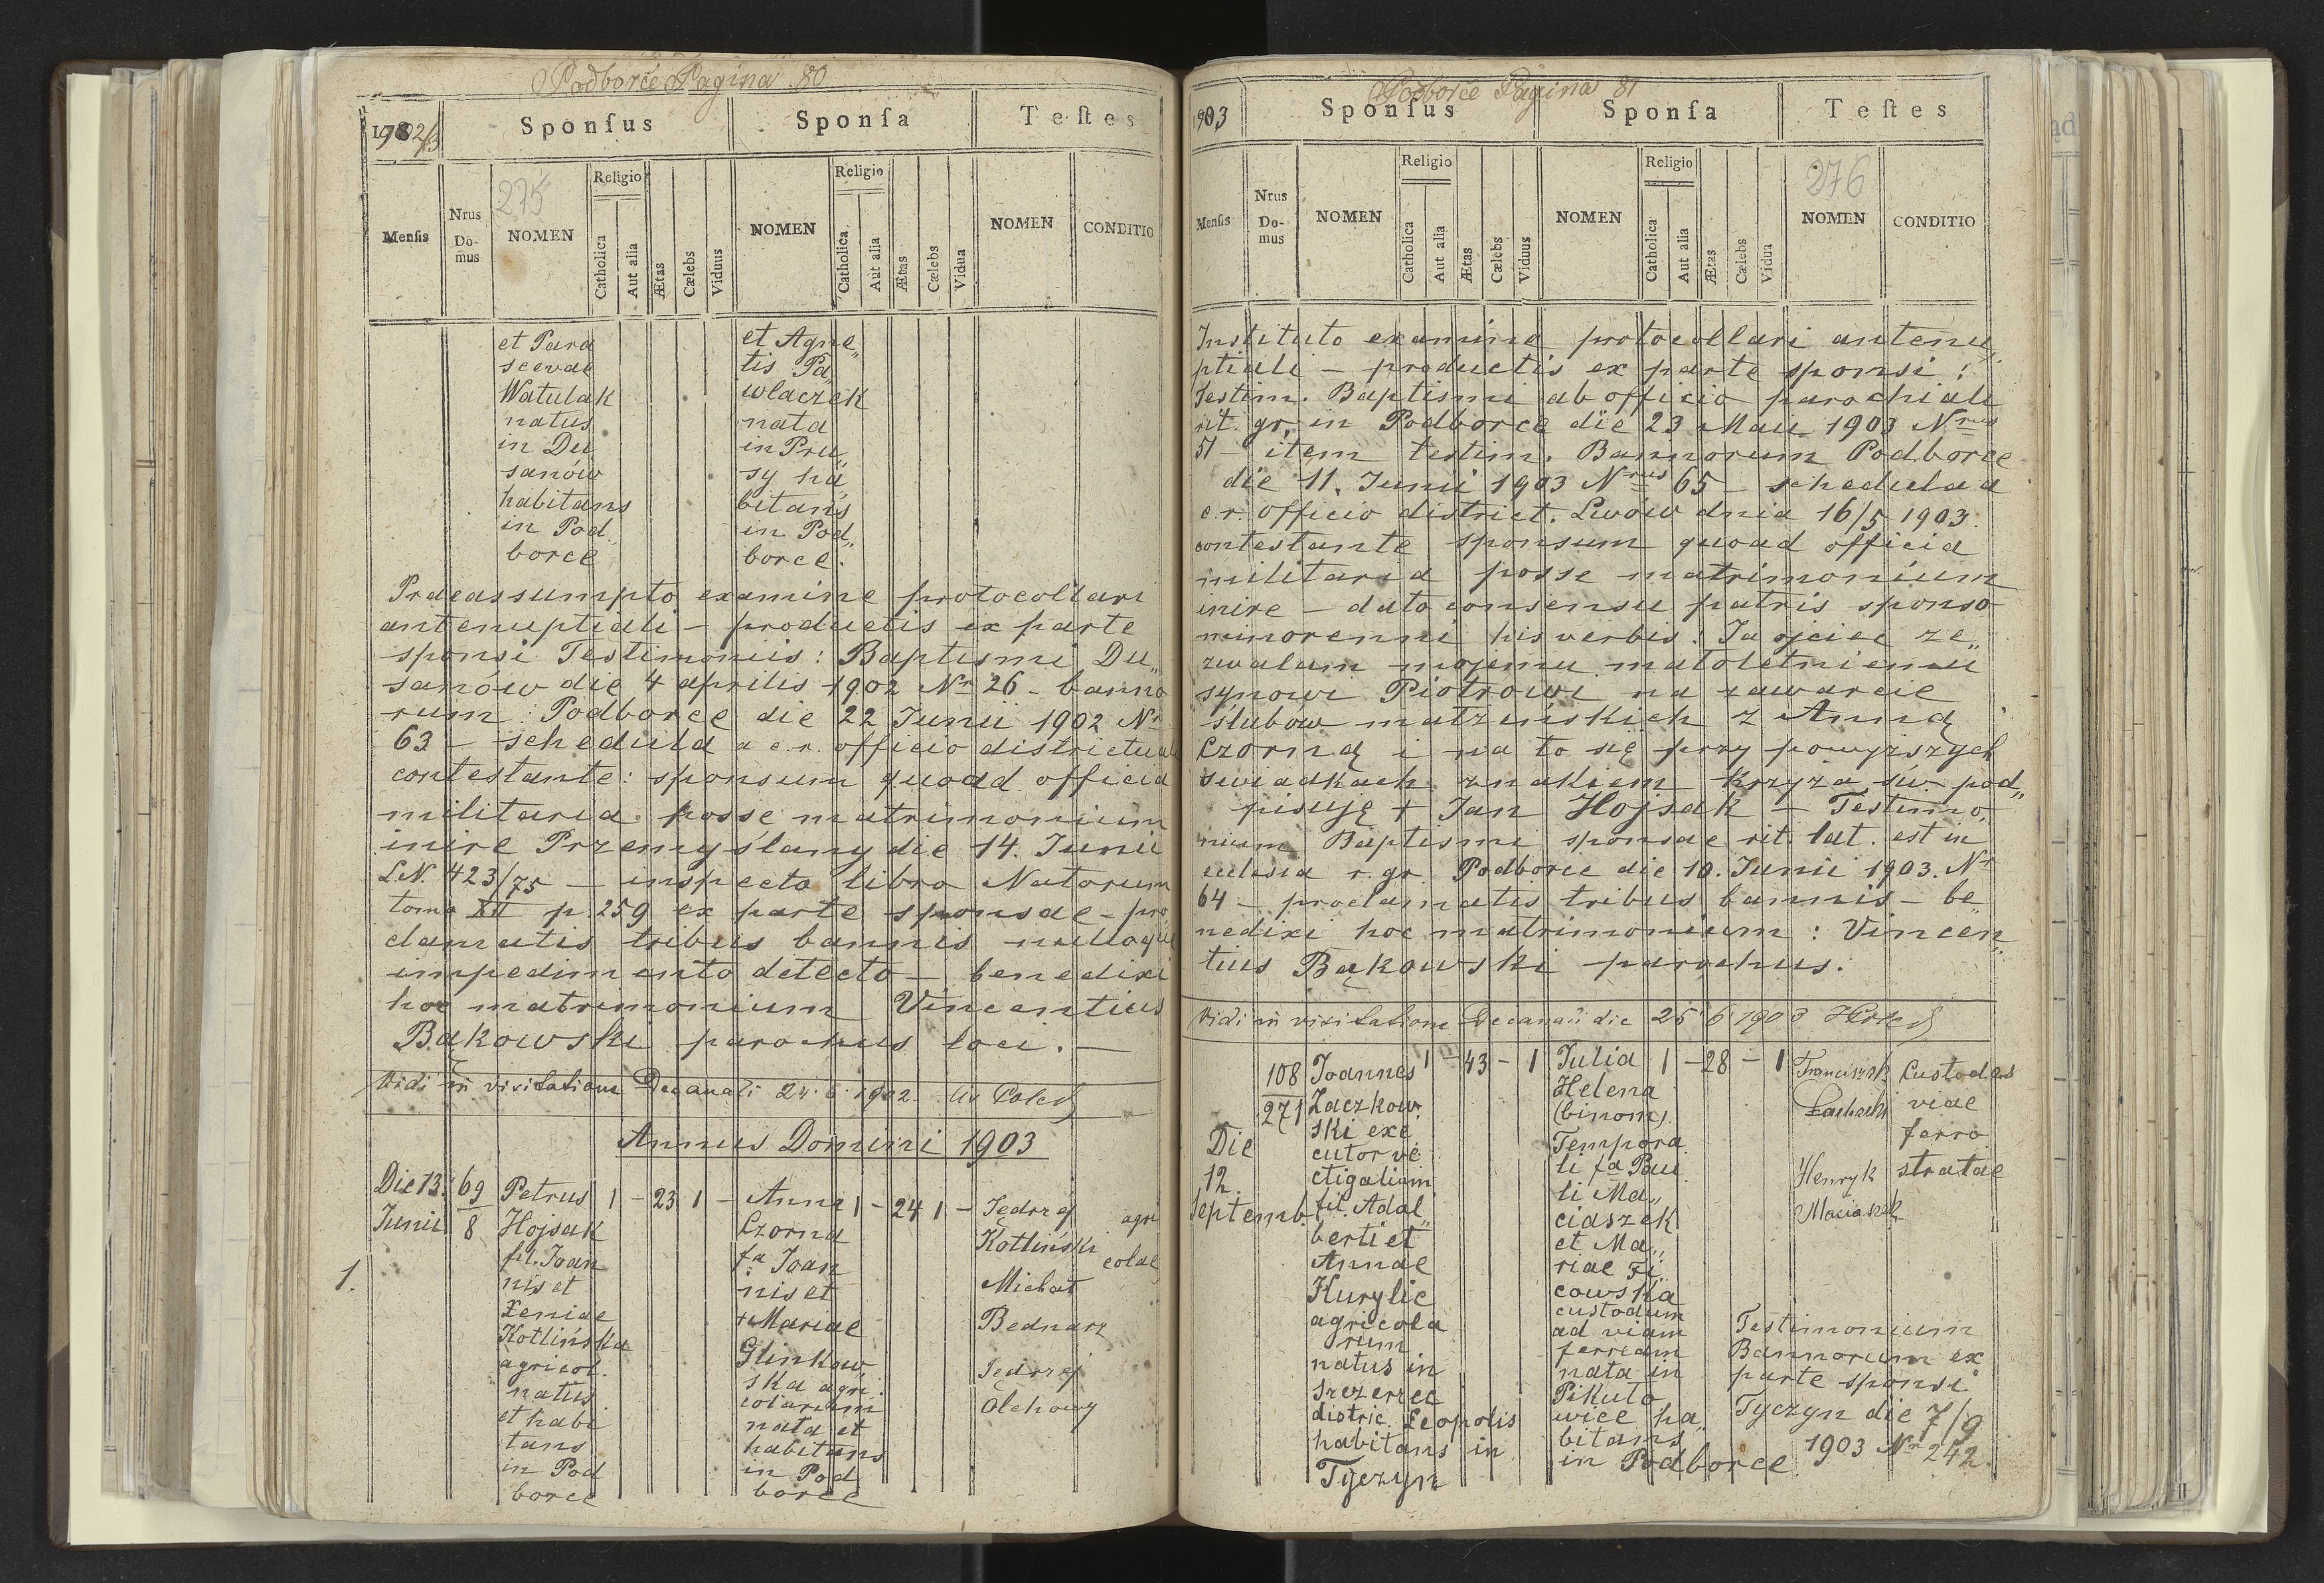 Podborce Pagina 80
1902/3
Sponsus
Sponsa
Testes
Mensis
Nrus Do-mus
275
NOMEN
Religio
Catholica
Aut alia
Ætas
Cælebs
Viduus
NOMEN
Religio
Catholica
Aut alia
Ætas
Cælebs
Vidua
NOMEN
CONDITIO
et Para
scevae
Watulak
natus
in Du
sanów
habitans
in Pod
borce
et Agne„
tis Pa„
wlaczek
nata
in Pru„
sy ha„
bitans
in Pod„
borce.
Praeassumpto examine protocollari
antenuptiali – productis ex parte
sponsi Testimoniis: Baptismi Du„
sanów die 4 aprilis 1902 Nr 26 – banno
rum: Podborce die 22 Junii 1902 Nr
63 – schedula a c.r. officio districtuali
contestante: sponsum quoad officia
militaria posse matrimonium
inire Przemyślany die 14. Junii
L.N. 423/75 – inspecto libro Natorum
tomo XII p. 259 ex parte sponsae – pro
clamatis tribus bannis nulloque
impedimento detecto – benedixi
hoc matrimonium Vincentius
Bąkowski parochus loci. –
Vidi in visitatione Decanali 24 6 1902.
Annus Domini 1903
Die 13.
Junii
1.
69
8
Petrus
Hojsak
fil. Joan
nis et
Xeniae
Kotlińska
agricol.
natus
et habi
tans
in Pod
borce
1 – 23 1 –
Anna
Czorna
fa Joan
nis et
+ Mariae
Glinkow„
ska agri„
colarum
nata et
habitans
in Pod
borce
1 – 24 1 –
Jędrzej
Kotliński
Michał
Bednarz
Jędrzej
Olchowy
agri
colae
Podborce Pagina 81
1903
Sponsus
Sponsa
Testes
Mensis
Nrus Do-mus
NOMEN
Religio
Catholica
Aut alia
Ætas
Cælebs
Viduus
NOMEN
Religio
Catholica
Aut alia
Ætas
Cælebs
Vidua
276
NOMEN
CONDITIO
Instituto examine protocollari antenu„
ptiali – productis ex parte sponsi:
Testim. Baptismi ab officio parochiali
rit. gr. in Podborce die 23 Maii 1903 Nrus
51 – item testim. Bannorum Podborce
die 11. Junii 1903 Nrus 65 – schedula a
c.r. officio district. Lwów dnia 16/5 1903.
contestante sponsum quoad officia
militaria posse matrimonium
inire – dato consensu patris sponso
minorenni his verbis: Ja ojciec ze„
zwalam mojemu małoletniemu
synowi Piotrowi na zawarcie
ślubów małżeńskich z Anną
Czorną i na to się przy powyższych
świadkach znakiem krzyża św. pod„
pisuję + Jan Hojsak – Testimo„
nium Baptismi sponsae rit. lat. est in
ecclesia r. gr. Podborce die 10. Junii 1903. Nr
64 – proclamatis tribus bannis – be„
nedixi hoc matrimonium: Vincen„
tius Bąkowski parochus.
Vidi in visitatione Decanali die 25 6 1903
Die
12.
Septemb.
108
271
Joannes
Zaczkow
ski exe
cutor ve
ctigalium
fil. Adal„
berti et
Annae
Kurylic
agricola
rum
natus in
Szczerzec
distric. Leopolis
habitans in
Tyczyn
1 – 43 – 1
Julia
Helena
(binom)
Tempora
li fa Pau
li Ma„
ciaszek
et Ma„
riae Fi„
cowska
custodum
ad viam
ferream
nata in
Pikuło
wice ha„
bitans
in Podborce
1 – 28 – 1
Franciszek
Henryk
Maciaszek
Custodes
viae
ferro
stratae
Testimonium
Bannorum ex
parte sponsi
Tyczyn die 7/9
1903 Nr 242.